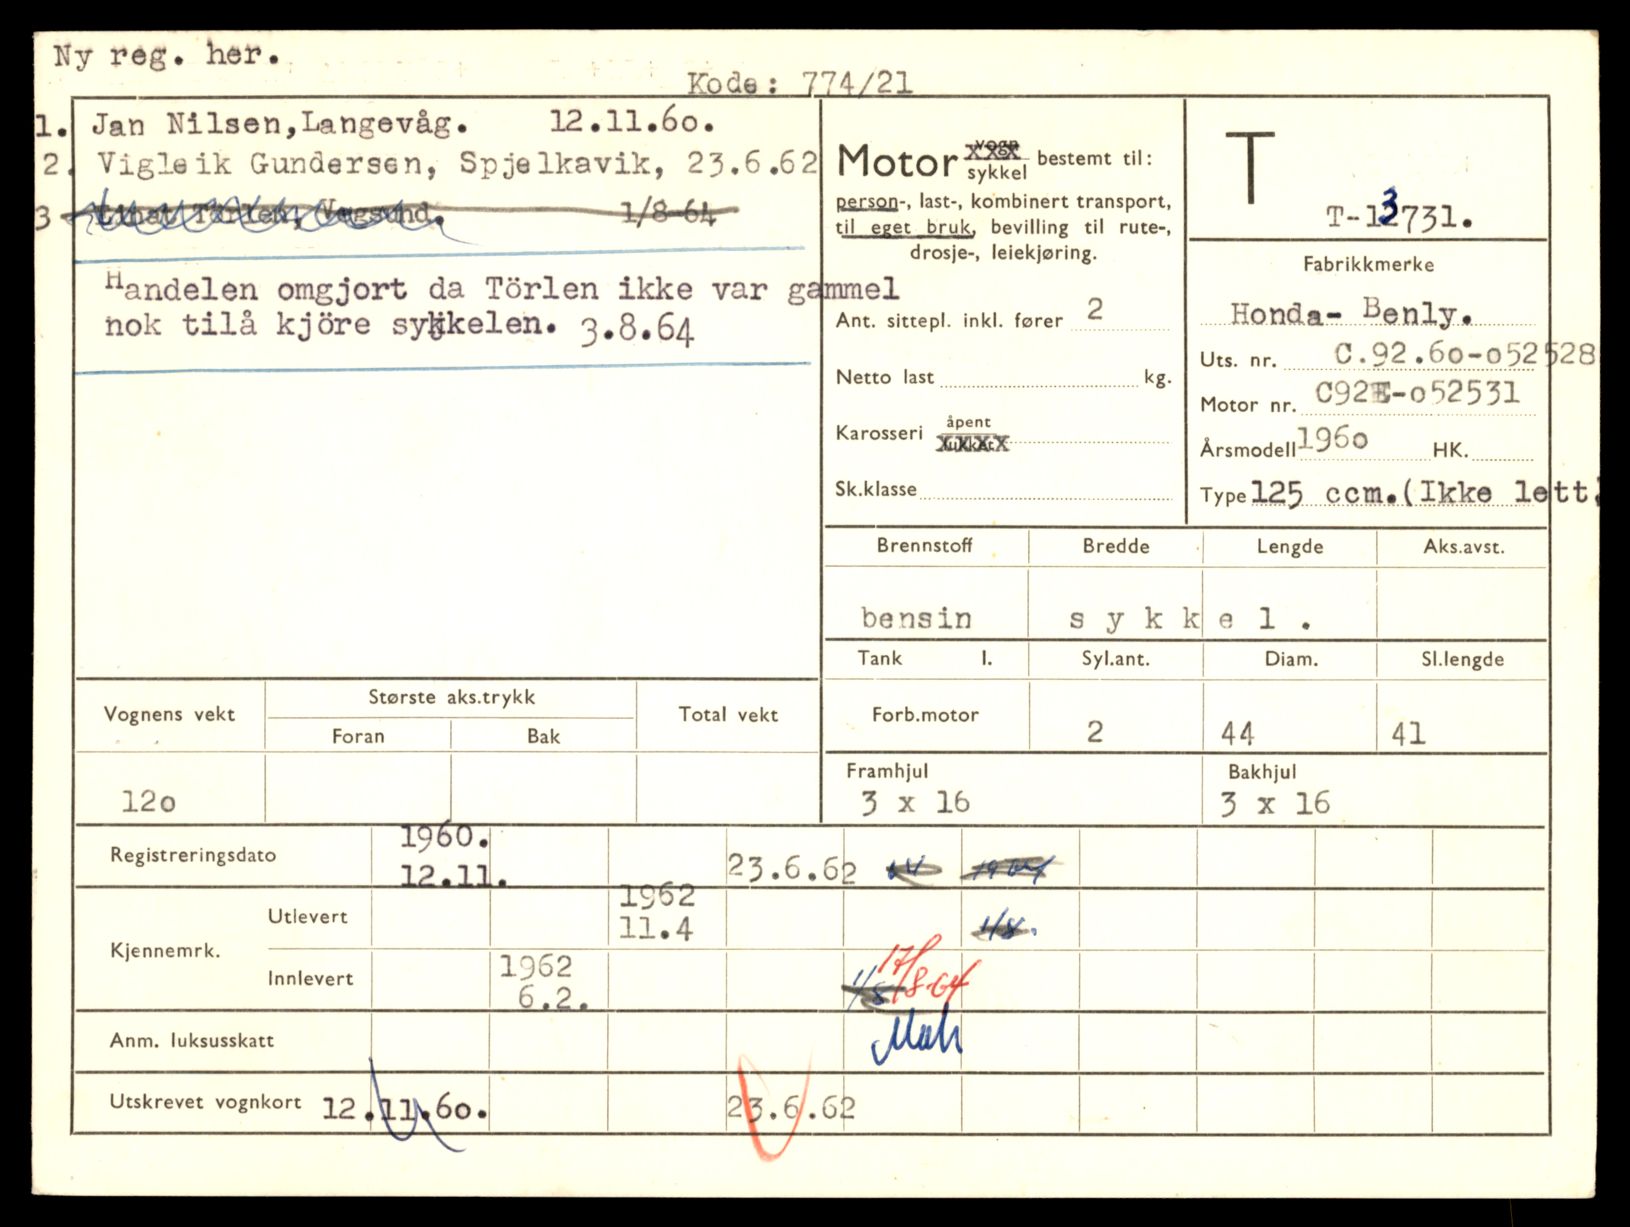 Ny reg. her.
Kode: 774/21
1. Jan Nilsen,Langevåg. 12.11.6o.
2. Vigleik Gundersen, Spjelkavik, 23.6.62
3 Törlen, Vegsund. 1/8-64
Handelen omgjort da Törlen ikke var gammel
nok tilå kjöre sykkelen. 3.8.64
Motor vogn
sykkel bestemt til:
person-, last-, kombinert transport,
til eget bruk, bevilling til rute-,
drosje-, leiekjøring.
Ant. sittepl. inkl. fører 2
Netto last kg.
Karosseri åpent
lukket
Sk.klasse
T
T-13731.
Fabrikkmerke
Honda- Benly.
Uts. nr. C.92.6o-o52528
Motor nr. C92E-o52531
Årsmodell 196o HK.
Type 125 ccm.(Ikke lett.
Brennstoff Bredde Lengde Aks.avst.
bensin s y k k e l .
Tank l. Syl.ant. Diam. Sl.lengde
Forb.motor 2 44 41
Vognens vekt Største aks.trykk Total vekt
Foran Bak
12o
Framhjul Bakhjul
3 x 16 3 x 16
Registreringsdato 1960. 12.11. 23.6.62 64 1964
Kjennemrk.
Utlevert 1962 11.4 1/8.
Innlevert 1962 6.2. 1/8 17/8-64
Anm. luksusskatt
Utskrevet vognkort 12.11.6o. 23.6.62